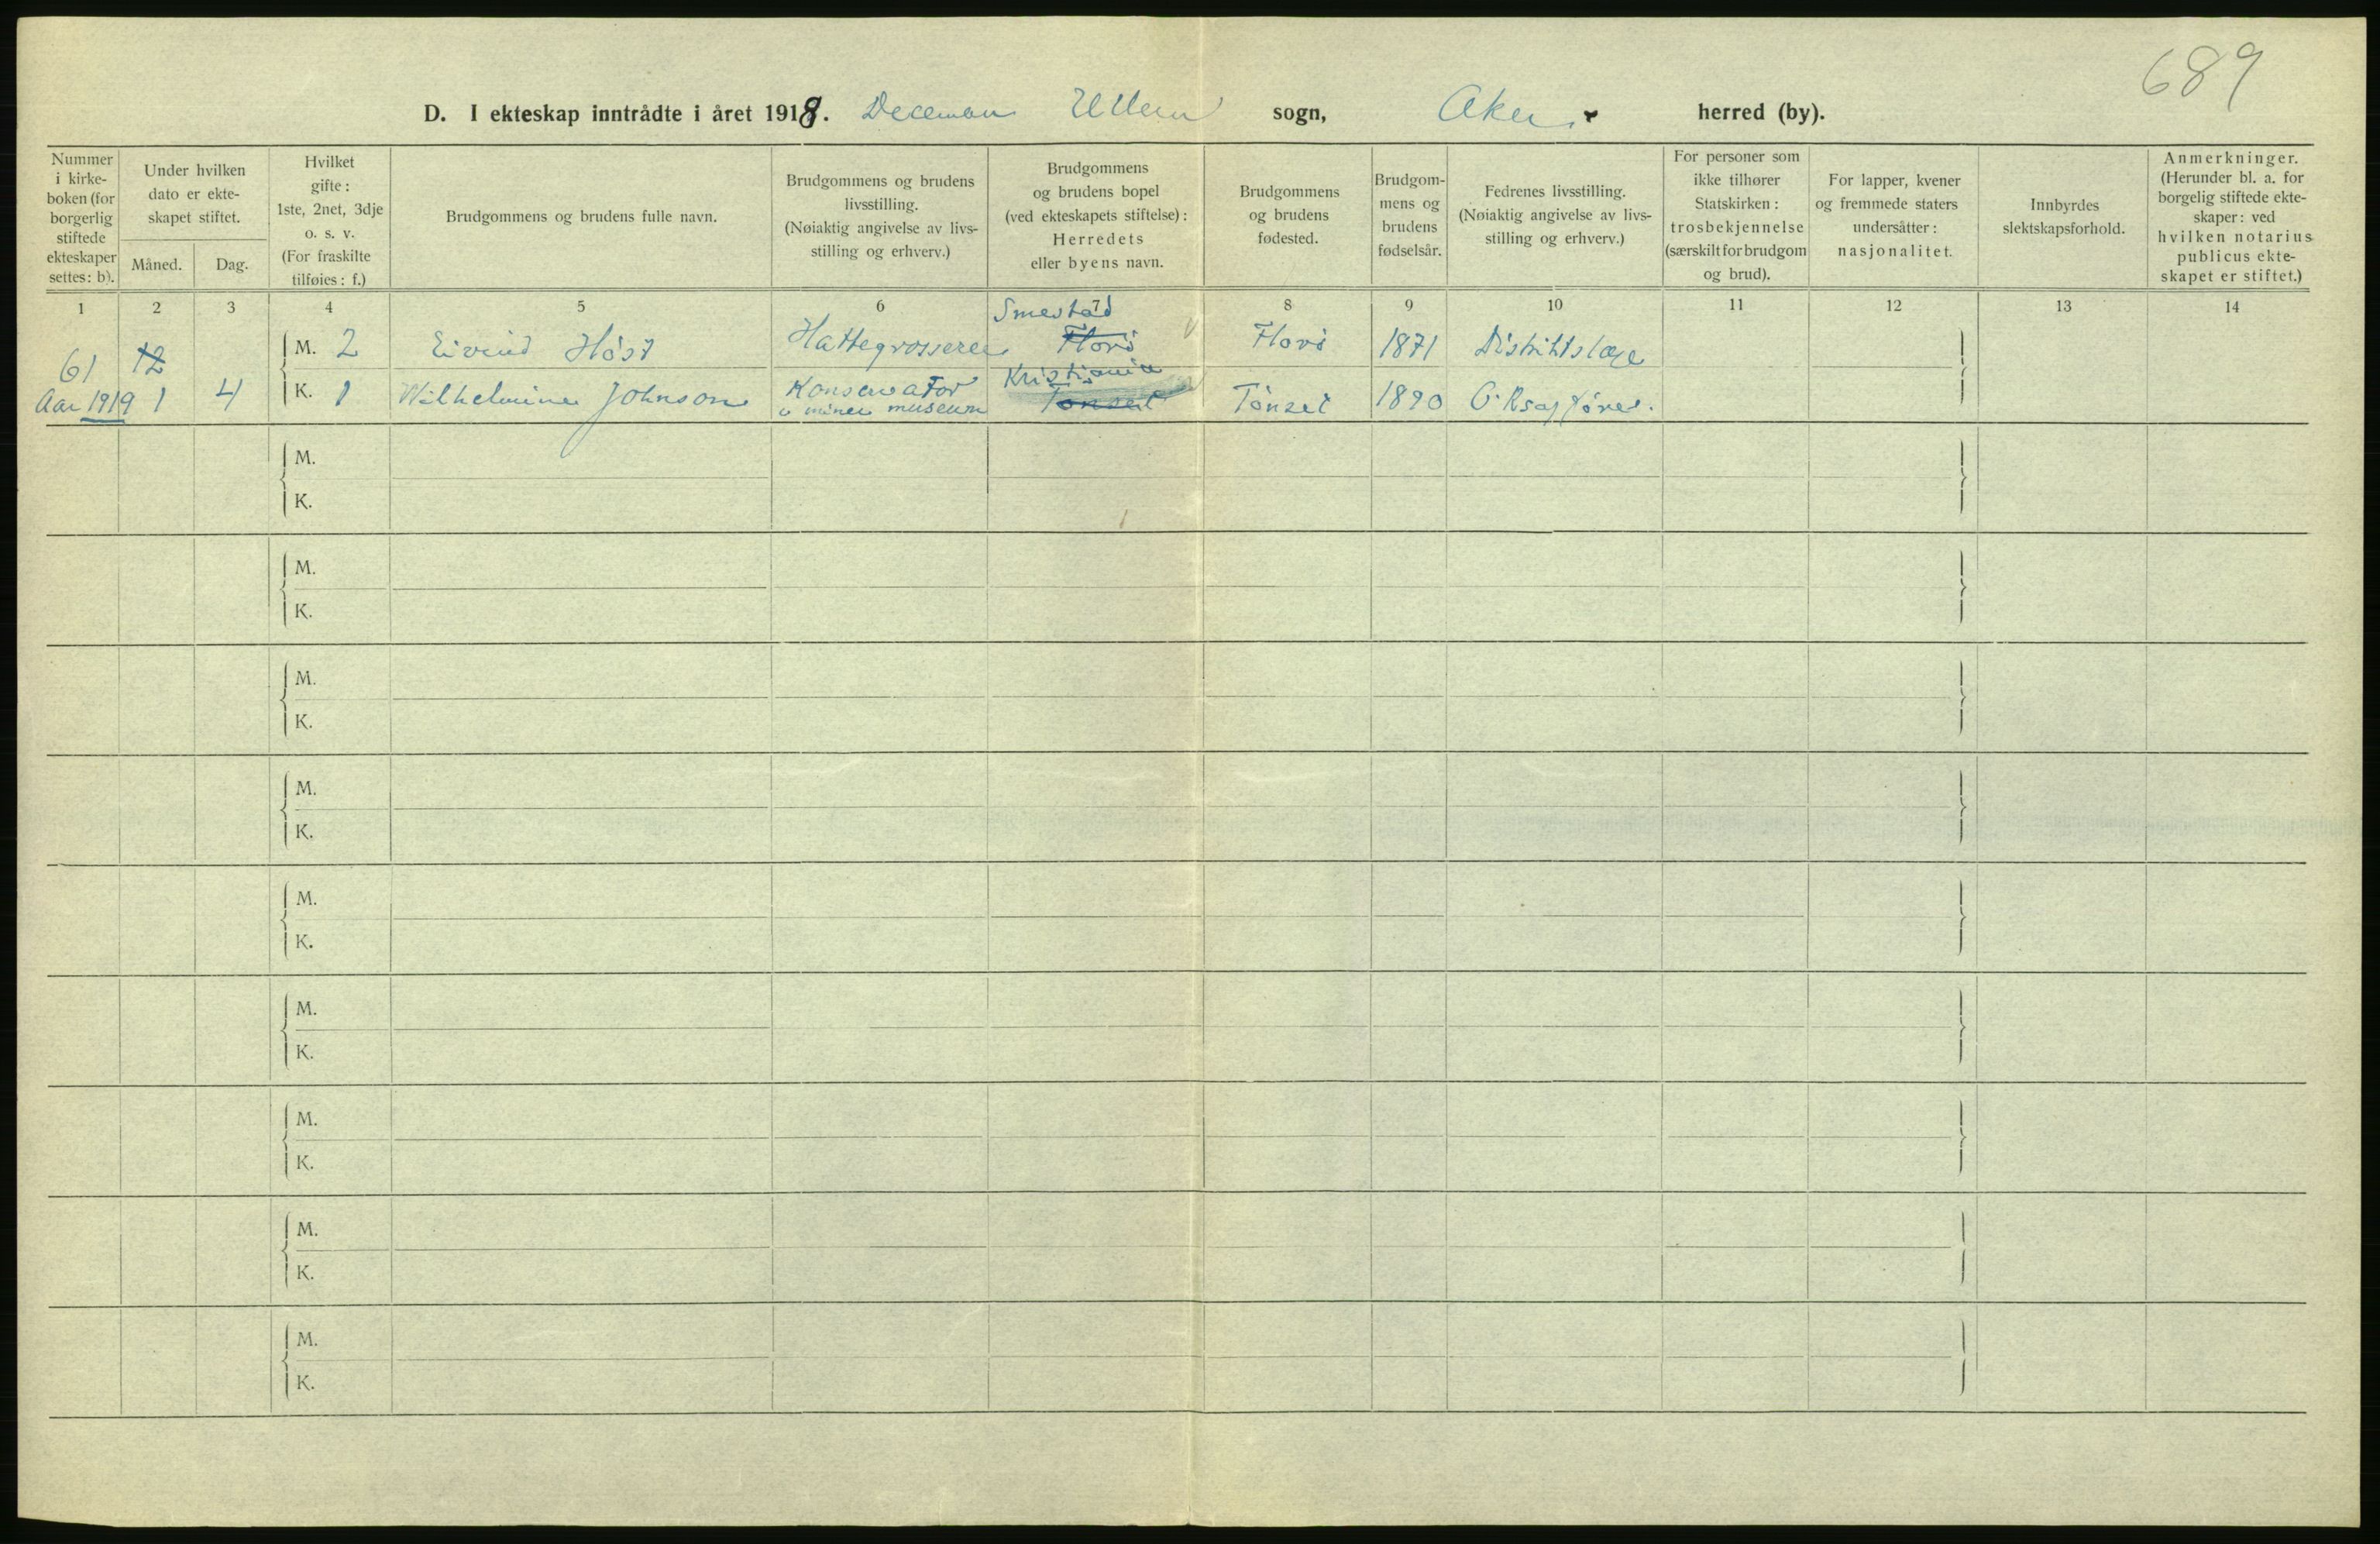 689
D. I ekteskap inntrådte i året 1918. Ullern sogn, Aker herred (by).
Nummer
i kirke-
boken (for
borgerlig
stiftede
ekteskaper
settes: b).
Under hvilken
dato er ekte-
skapet stiftet.
Måned.
Dag.
Hvilket
gifte:
1ste, 2net, 3dje
o. s. v.
(For fraskilte
tilføies: f.)
Brudgommens og brudens fulle navn.
Brudgommens og brudens
livsstilling.
(Nøiaktig angivelse av livs-
stilling og erhverv.)
Brudgommens
og brudens bopel
(ved ekteskapets stiftelse):
Herredets
eller byens navn.
Brudgommens
og brudens
fødested.
Brudgom-
mens og
brudens
fødselsår.
Fedrenes livsstilling.
(Nøiaktig angivelse av livs-
stilling og erhverv.)
For personer som
ikke tilhører
Statskirken:
trosbekjennelse
(særskilt for brudgom
og brud).
For lapper, kvener
og fremmede staters
undersåtter:
nasjonalitet.
Innbyrdes
slektskapsforhold.
Anmerkninger.
(Herunder bl. a. for
borgelig stiftede ekte-
skaper: ved
hvilken notarius
publicus ekte-
skapet er stiftet.)
1 2 3 4 5 6 7 8 9 10 11 12 13 14
Smestad
61 12 M. 2 Eivind Høst Hattegrosserer Florö Florö 1871 Distriktslæge
Kristiania
Aar 1919 1 4 K. 1 Wilhelmine Johnson Konservator Tönset Tönset 1890 O.Rsagfører.
museum
M.
K.
M.
K.
M.
K.
M.
K.
M.
K.
M.
K.
M.
K.
M.
K.
M.
K.